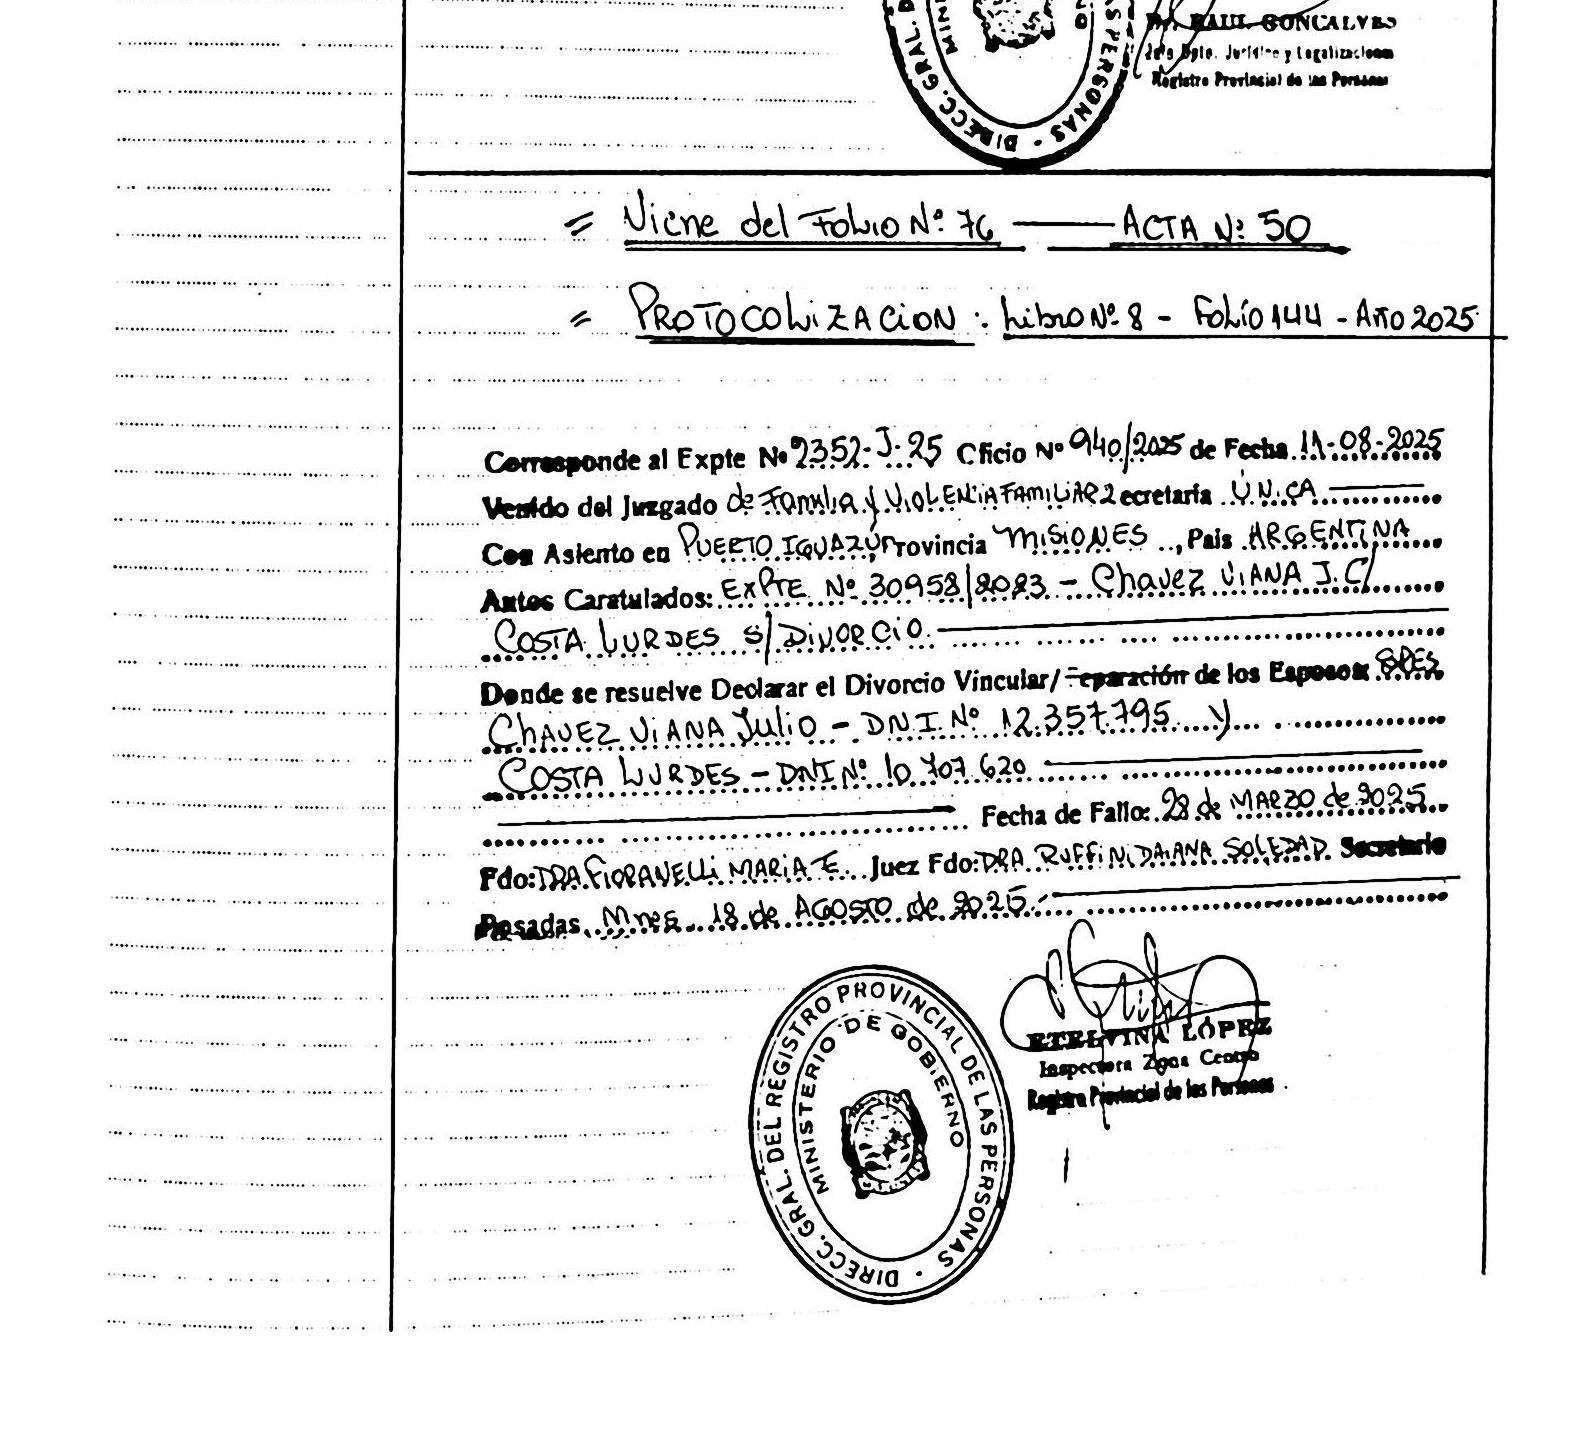 Dr. RAUL GONCALVES
Jefe Dpto. Jurídico y Legalizaciones
Registro Provincial de las Personas
DIRECC. GRAL. D PERSONAS
MIN NO
= Viene del Folio Nº 76 — ACTA Nº 50
= PROTOCOLIZACION : Libro Nº 8 - Folio 144 - Año 2025
Corresponde al Expte Nº 2352-J-25 Oficio Nº 940/2025 de Fecha 11-08-2025
Venido del Juzgado de Familia y VIOLENCIA FAMILIAR 2 ecretaría ÚNICA
Con Asiento en PUERTO IGUAZÚ Provincia MISIONES, País ARGENTINA
Autos Caratulados: EXPTE Nº 30958/2023 - Chavez VIANA J. C/
COSTA LURDES S/ DIVORCIO.
Donde se resuelve Declarar el Divorcio Vincular/ eparación de los Esposos:
CHAVEZ VIANA Julio - D.N.I. Nº 12.357.795 y
COSTA LURDES - DNI Nº 10.707.620
Fecha de Fallo: 28 de MARZO de 2025
Fdo: DRA. FIORANELLI MARIA E. Juez Fdo: DRA RUFFINI DAIANA SOLEDAD. Secretario
Posadas, Mnes. 18 de AGOSTO de 2025.
DIRECC. GRAL. DEL REGISTRO PROVINCIAL DE LAS PERSONAS
MINISTERIO DE GOBIERNO
ETELVINA LÓPEZ
Inspectora Zona Centro
Registro Provincial de las Personas